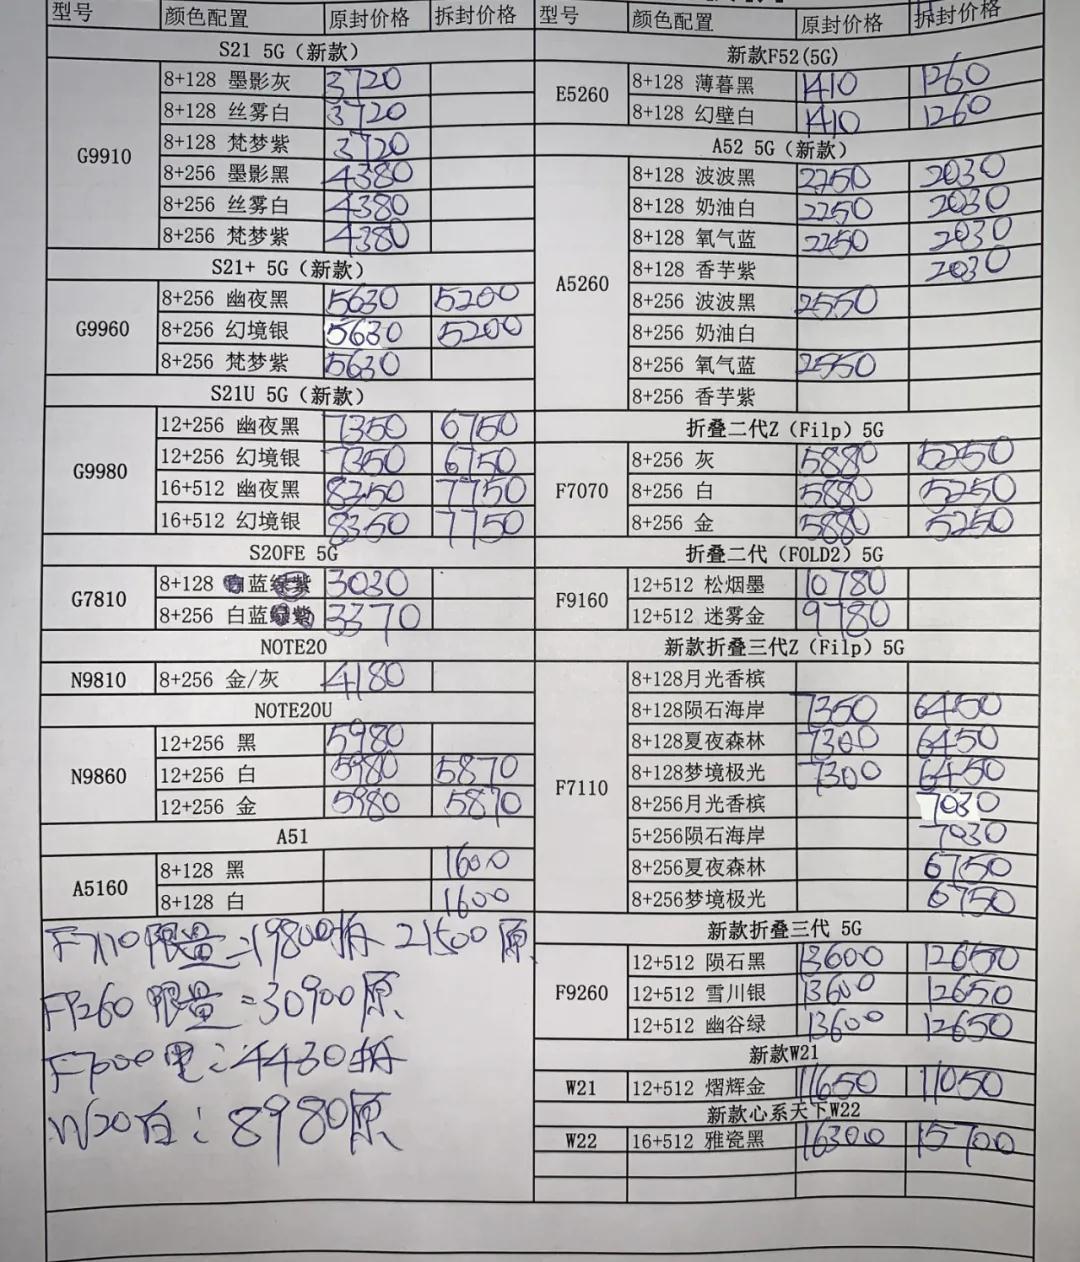 型号 颜色配置 原封价格 拆封价格
S21 5G（新款）
G9910
8+128 墨影灰 3720
8+128 丝雾白 3720
8+128 梵梦紫 3720
8+256 墨影黑 4380
8+256 丝雾白 4380
8+256 梵梦紫 4380
S21+ 5G（新款）
G9960
8+256 幽夜黑 5630 5200
8+256 幻境银 5630 5200
8+256 梵梦紫 5630
S21U 5G（新款）
G9980
12+256 幽夜黑 7350 6750
12+256 幻境银 7350 6750
16+512 幽夜黑 8350 7750
16+512 幻境银 8350 7750
S20FE 5G
G7810
8+128 蓝 紫 3030
8+256 白蓝 3370
NOTE20
N9810 8+256 金/灰 4180
NOTE20U
N9860
12+256 黑 5980
12+256 白 5980 5870
12+256 金 5980 5870
A51
A5160
8+128 黑 1600
8+128 白 1600
F7110限量:19800拆 21500原
F9260限量:30900原
F7000 :4430拆
W20白:8980原
型号 颜色配置 原封价格 拆封价格
新款F52(5G)
E5260
8+128 薄暮黑 1410 1260
8+128 幻壁白 1410 1260
A52 5G（新款）
A5260
8+128 波波黑 2250 2030
8+128 奶油白 2250 2030
8+128 氧气蓝 2250 2030
8+128 香芋紫 2030
8+256 波波黑 2550
8+256 奶油白
8+256 氧气蓝 2550
8+256 香芋紫
折叠二代Z（Filp）5G
F7070
8+256 灰 5880 5250
8+256 白 5880 5250
8+256 金 5880 5250
折叠二代（FOLD2）5G
F9160
12+512 松烟墨 10780
12+512 迷雾金 9780
新款折叠三代Z（Filp）5G
F7110
8+128月光香槟
8+128陨石海岸 7350 6450
8+128夏夜森林 7300 6450
8+128梦境极光 7300 6450
8+256月光香槟 7030
5+256陨石海岸 7030
8+256夏夜森林 6750
8+256梦境极光 6750
新款折叠三代 5G
F9260
12+512 陨石黑 13600 12650
12+512 雪川银 13600 12650
12+512 幽谷绿 13600 12650
新款W21
W21 12+512 熠辉金 11650 11050
新款心系天下W22
W22 16+512 雅瓷黑 16300 15700